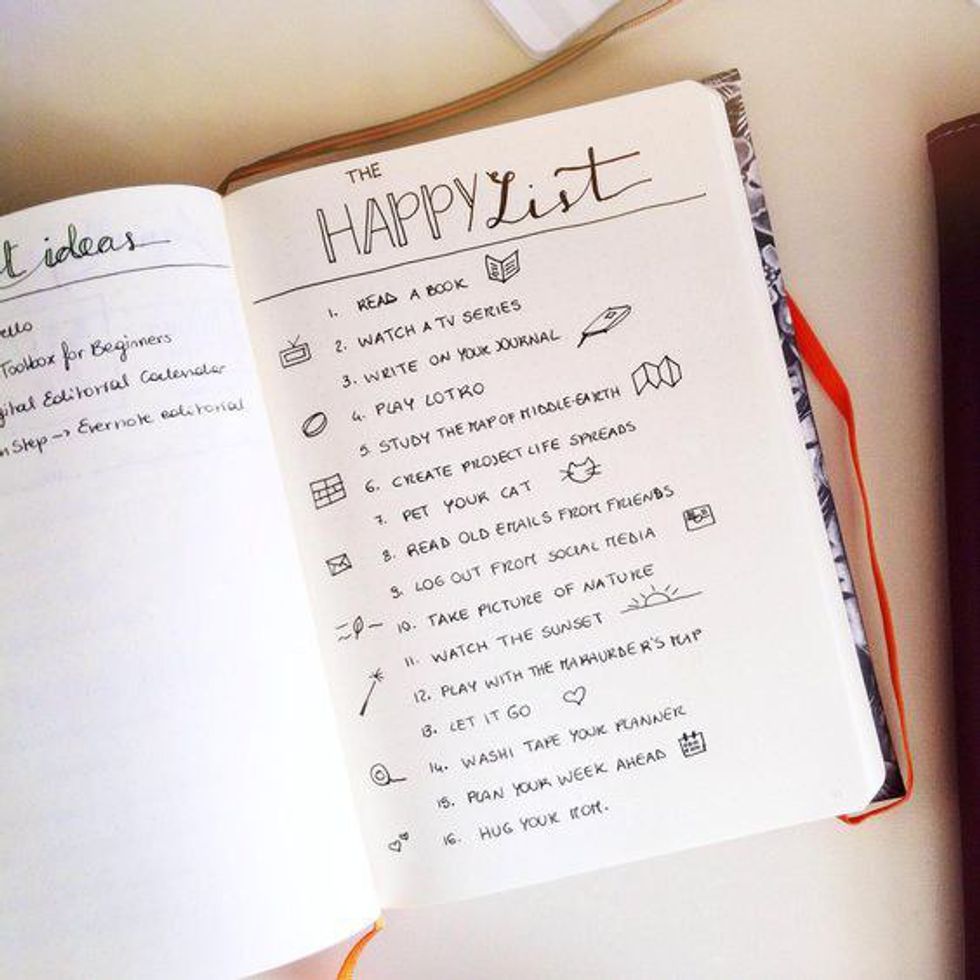 t ideas
ello
Toolbox for Beginners
gital Editorial Calendar
n Step -> Evernote editorial
THE
HAPPY List
1. READ A BOOK
2. WATCH A TV SERIES
3. WRITE ON YOUR JOURNAL
4. PLAY LOTRO
5. STUDY THE MAP OF MIDDLE-EARTH
6. CREATE PROJECT LIFE SPREADS
7. PET YOUR CAT
8. READ OLD EMAILS FROM FRIENDS
9. LOG OUT FROM SOCIAL MEDIA
10. TAKE PICTURE OF NATURE
11. WATCH THE SUNSET
12. PLAY WITH THE MARAURDER'S MAP
13. LET IT GO
14. WASHI TAPE YOUR PLANNER
15. PLAN YOUR WEEK AHEAD
16. HUG YOUR MOM.